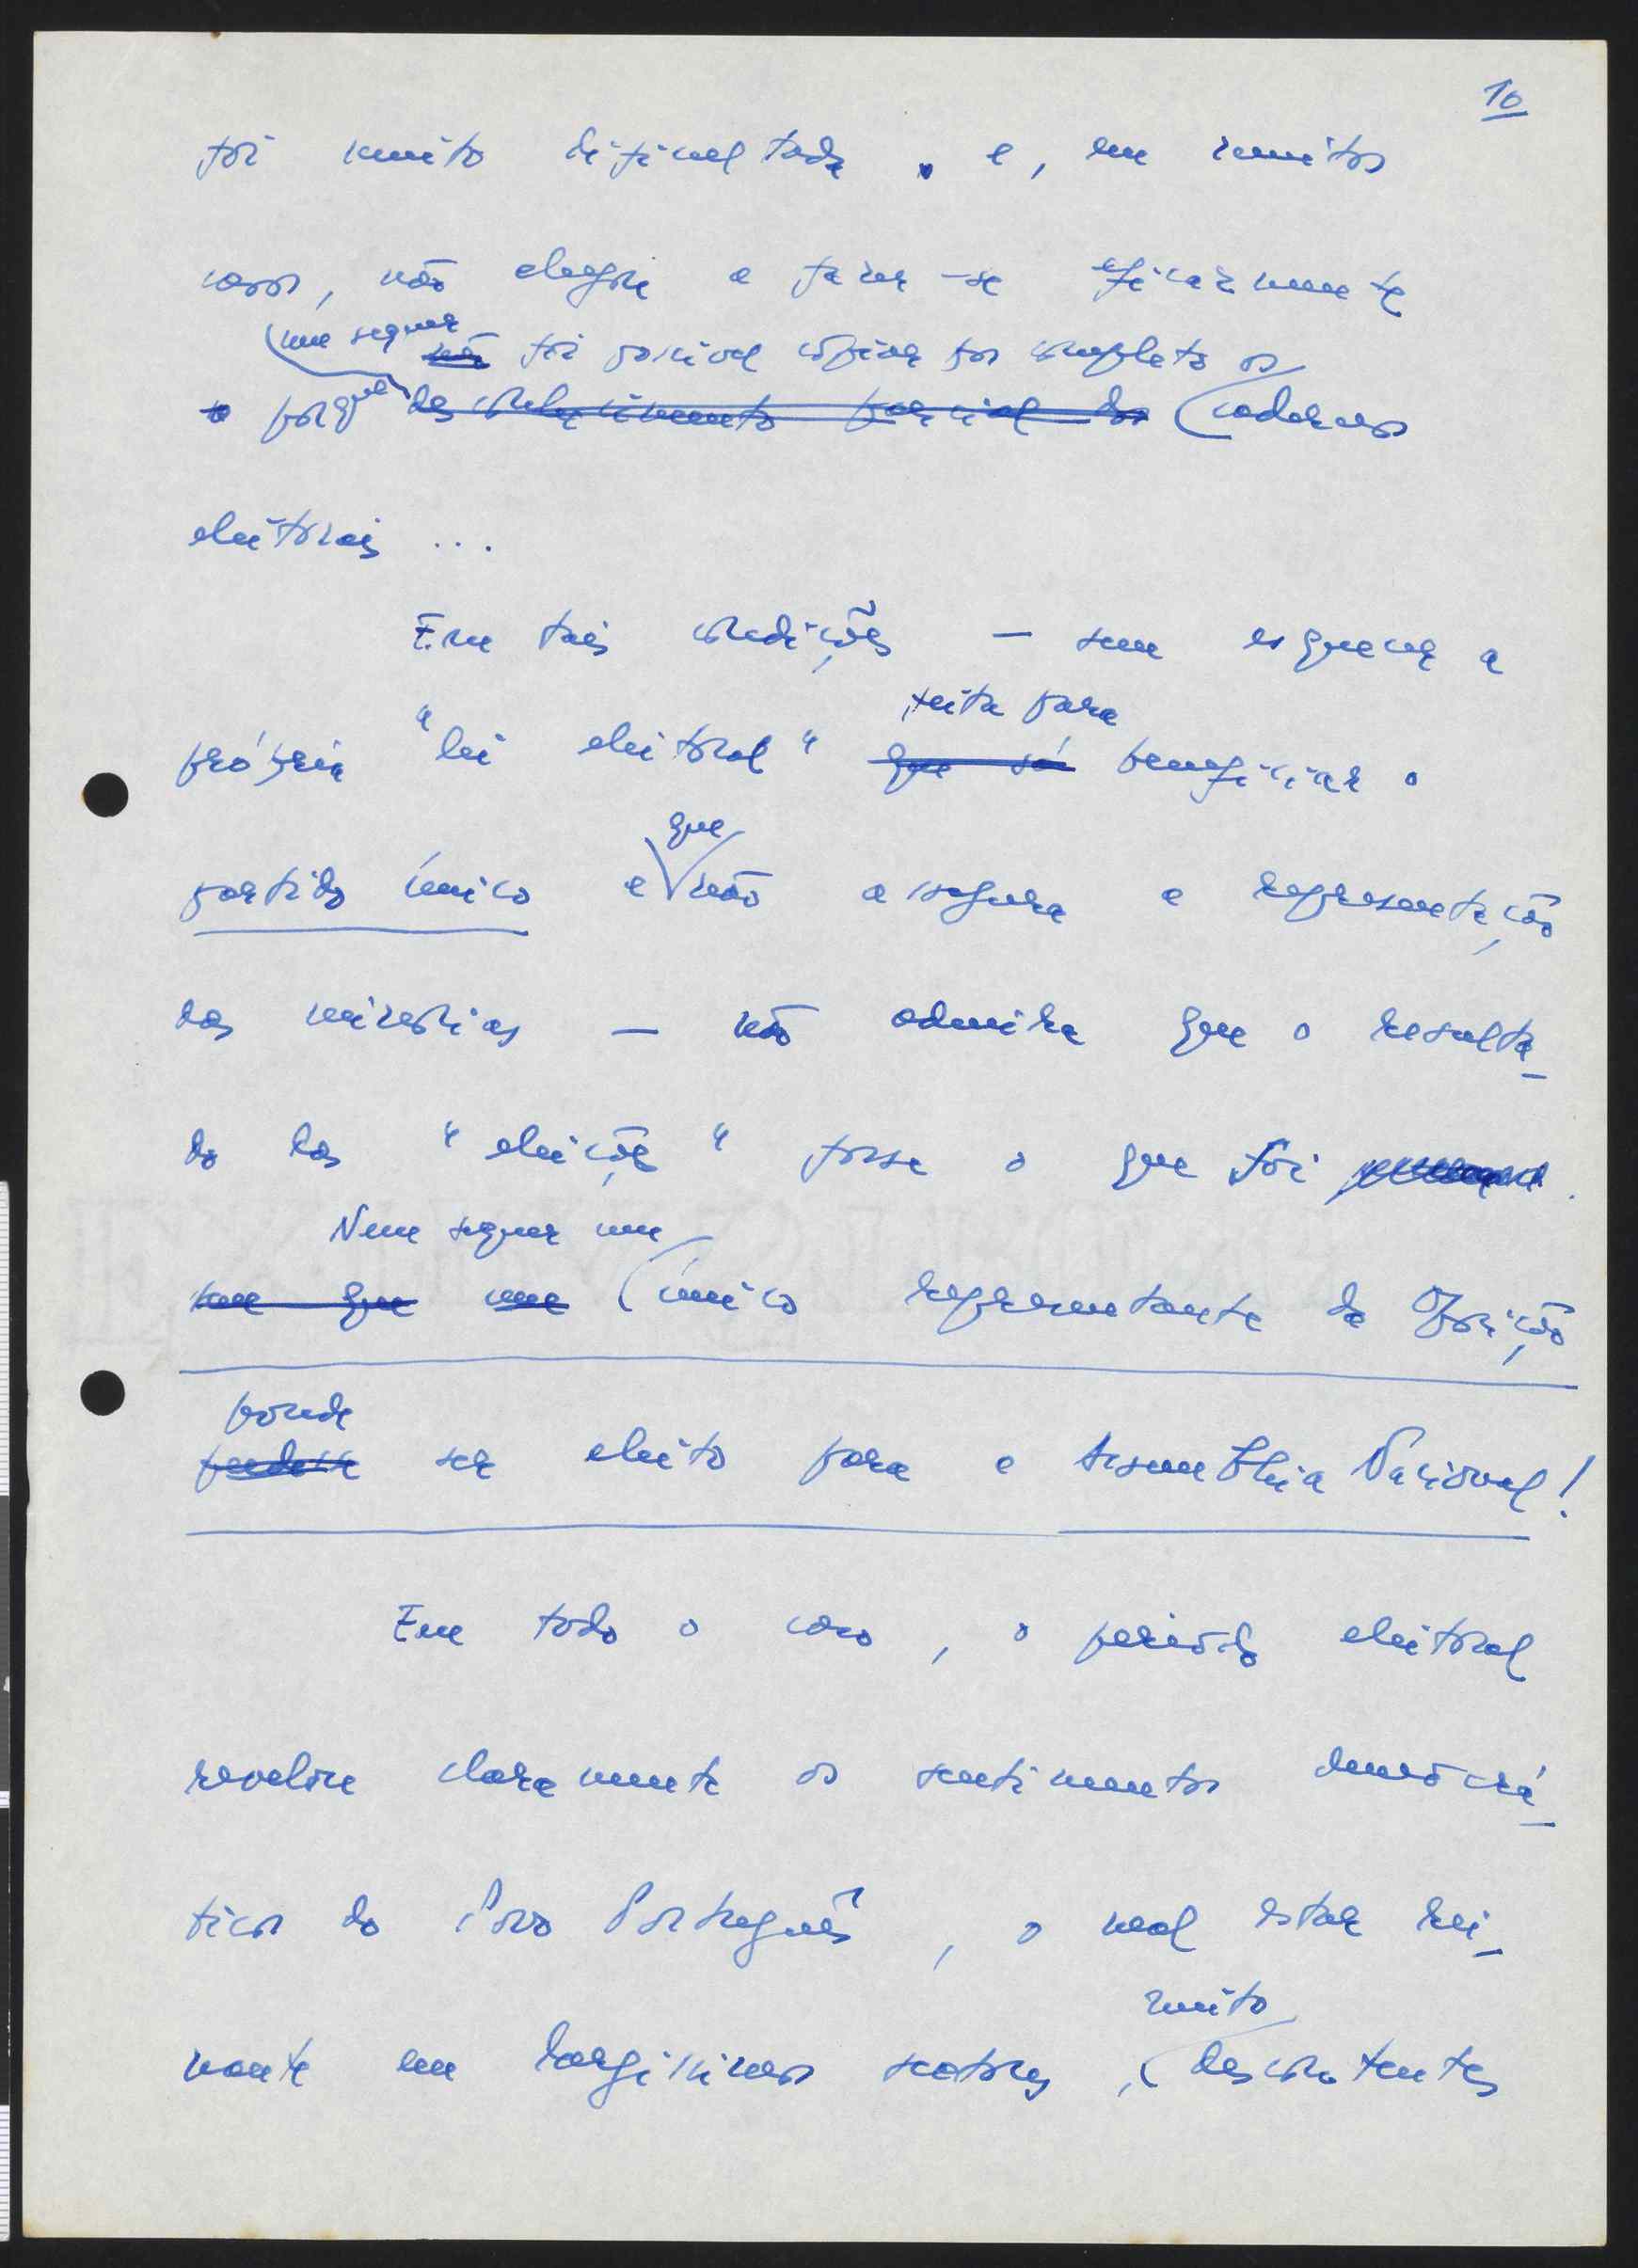 10
foi muito dificultada e, em muitos
casos, não chegou a fazer-se eficazmente
nem sequer não foi possível copiar por completo os
porque desconhecimento parcial dos cadernos
eleitorais ...
Em tais condições — sem esquecer a
feita para
própria "lei eleitoral" que só beneficiar o
que
partido único e não assegura a representação
das minorias — não admira que o resulta-
do das "eleições" fosse o que foi
Nem sequer um
sem que um único representante da Oposição
poude
pudesse ser eleito para a Assembleia Nacional!
Em todo o caso, o período eleitoral
revelou claramente os sentimentos democrá-
ticos do Povo Português, o mal estar rei-
muito
nante em larguíssimos sectores, descontentes